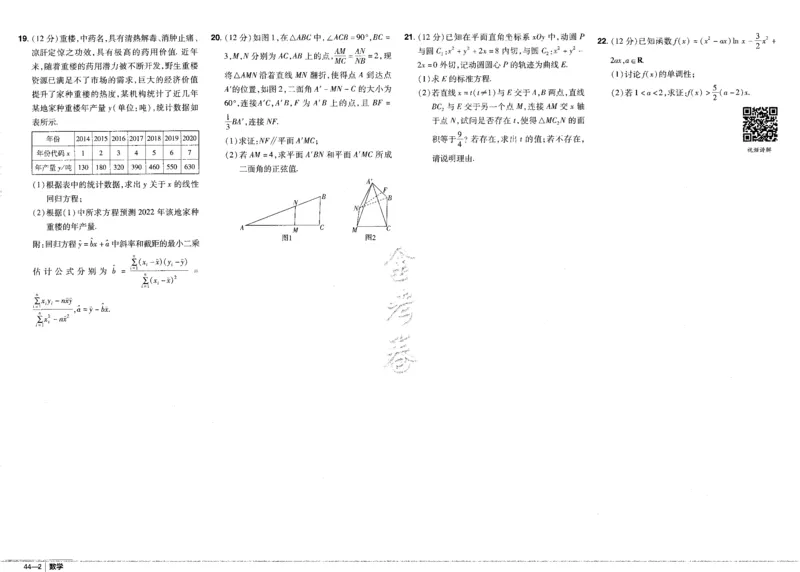 19. (12 分)重楼,中药名,具有清热解毒、消肿止痛、
凉肝定惊之功效,具有极高的药用价值. 近年
来,随着重楼的药用潜力被不断开发,野生重楼
资源已满足不了市场的需求,巨大的经济价值
提升了家种重楼的热度,某机构统计了近几年
某地家种重楼年产量 y(单位:吨),统计数据如
表所示.
年份 2014 2015 2016 2017 2018 2019 2020
年份代码 x 1 2 3 4 5 6 7
年产量 y/吨 130 180 320 390 460 550 630
(1)根据表中的统计数据,求出 y 关于 x 的线性
回归方程;
(2)根据(1)中所求方程预测 2022 年该地家种
重楼的年产量.
附:回归方程 ŷ = b̂x + â 中斜率和截距的最小二乘
估计公式分别为 b̂ = \frac{\sum_{i=1}^{n}(x_i - x̄)(y_i - ȳ)}{\sum_{i=1}^{n}(x_i - x̄)^2} =
\frac{\sum_{i=1}^{n}x_iy_i - nx̄ȳ}{\sum_{i=1}^{n}x_i^2 - nx̄^2}, â = ȳ - b̂x̄.
20. (12 分)如图 1,在△ABC 中,∠ACB = 90°,BC =
3,M,N 分别为 AC,AB 上的点,AM/MC = AN/NB = 2,现
将△AMN 沿着直线 MN 翻折,使得点 A 到达点
A′的位置,如图 2,二面角 A′ - MN - C 的大小为
60°,连接 A′C,A′B,F 为 A′B 上的点,且 BF =
1/3 BA′,连接 NF.
(1)求证:NF∥平面 A′MC;
(2)若 AM = 4,求平面 A′BN 和平面 A′MC 所成
二面角的正弦值.
A N B M C
图1
A′ F B N M C
图2
21. (12 分)已知在平面直角坐标系 xOy 中,动圆 P
与圆 C₁:x² + y² + 2x = 8 内切,与圆 C₂:x² + y² -
2x = 0 外切,记动圆圆心 P 的轨迹为曲线 E.
(1)求 E 的标准方程.
(2)若直线 x = t(t≠1)与 E 交于 A,B 两点,直线
BC₂ 与 E 交于另一个点 M,连接 AM 交 x 轴
于点 N,试问是否存在 t,使得△MC₂N 的面
积等于 9/4? 若存在,求出 t 的值;若不存在,
请说明理由.
22. (12 分)已知函数 f(x) = (x² - ax)ln x - 3/2 x² +
2ax,a∈R.
(1)讨论 f(x)的单调性;
(2)若 1 < a < 2,求证:f(x) > 5/2 (a - 2)x.
视频讲解
金考卷
44—2 数学